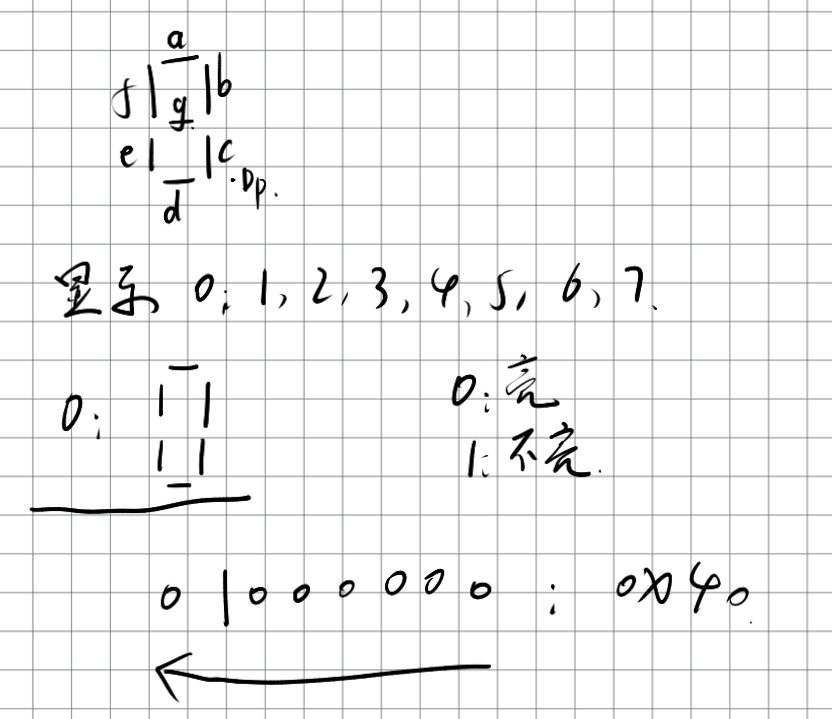 a
f g b
e c .Dp.
d
显示 0; 1, 2, 3, 4, 5, 6, 7.
0; 0:亮
1:不亮.
01000000 : 0X40